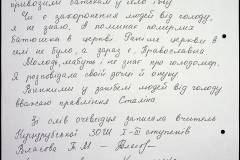 привозили батькам у село їжу.
Чи є захоронення людей від голоду,
я не знаю. А поминає померлих
батюшка в церкві. Раніше церкви в
селі не було, а зараз є. Православна.
Молодь, мабуть, не знає про голодомор.
Я розповідала своїй дочці й онуку.
Винними у загибелі людей від голоду
вважаю правління Сталіна.
Зі слів очевидця записала вчитель
Кущурубської ЗОШ І-ІІІ ступенів
Власова Т.М.